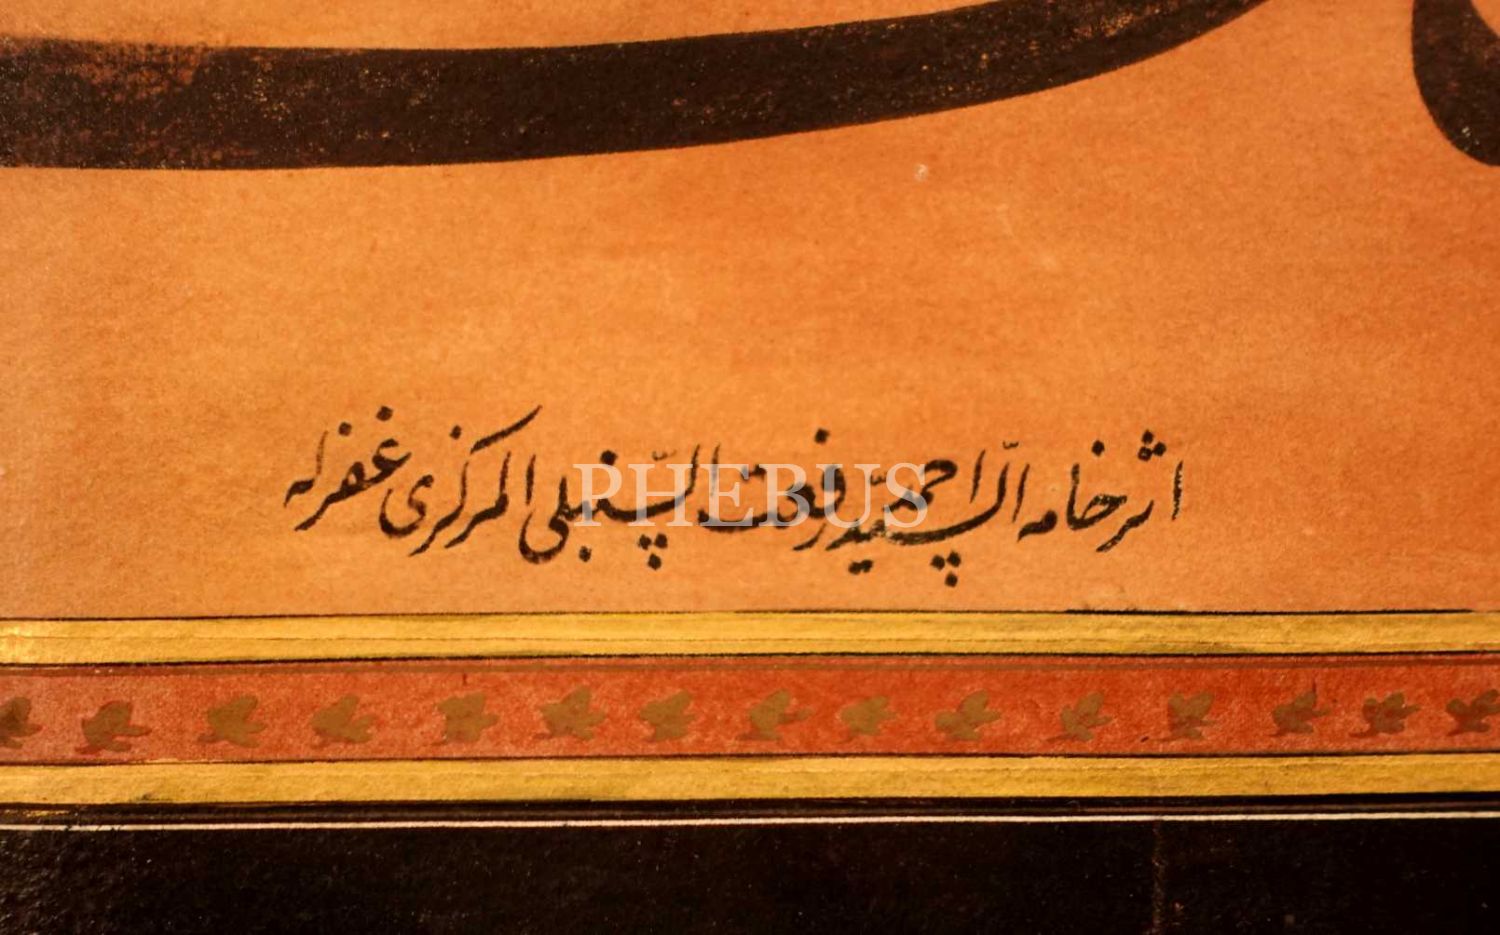 اثر خامه السيد احمد رفعت السنبلی المرکزی غفرله
PHEBUS